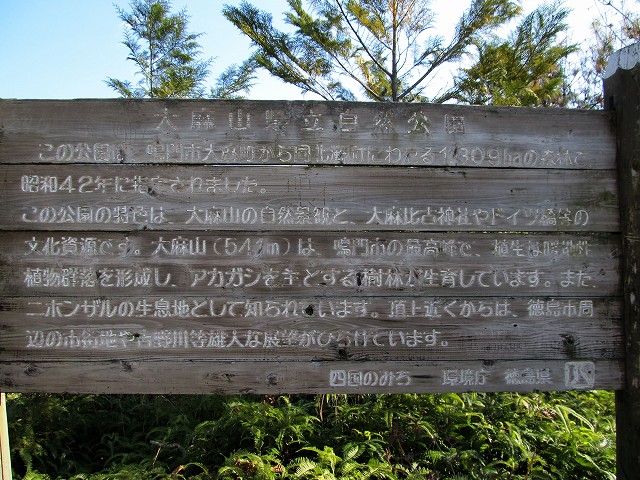 大麻山県立自然公園
この公園は、鳴門市大麻町から 北 町にわたる1,309haの森林で
昭和42年に指定されました。
この公園の特色は、大麻山の自然景観と、大麻比古神社やドイツ橋等の
文化資源です。大麻山(541m)は、鳴門市の最高峰で、植生は暖地性
植物群落を形成し、アカガシを主とする樹林が生育しています。また、
ニホンザルの生息地として知られています。頂上近くからは、徳島市周
辺の市街地や吉野川等雄大な展望がひらけています。
四国のみち 環境庁 徳島県